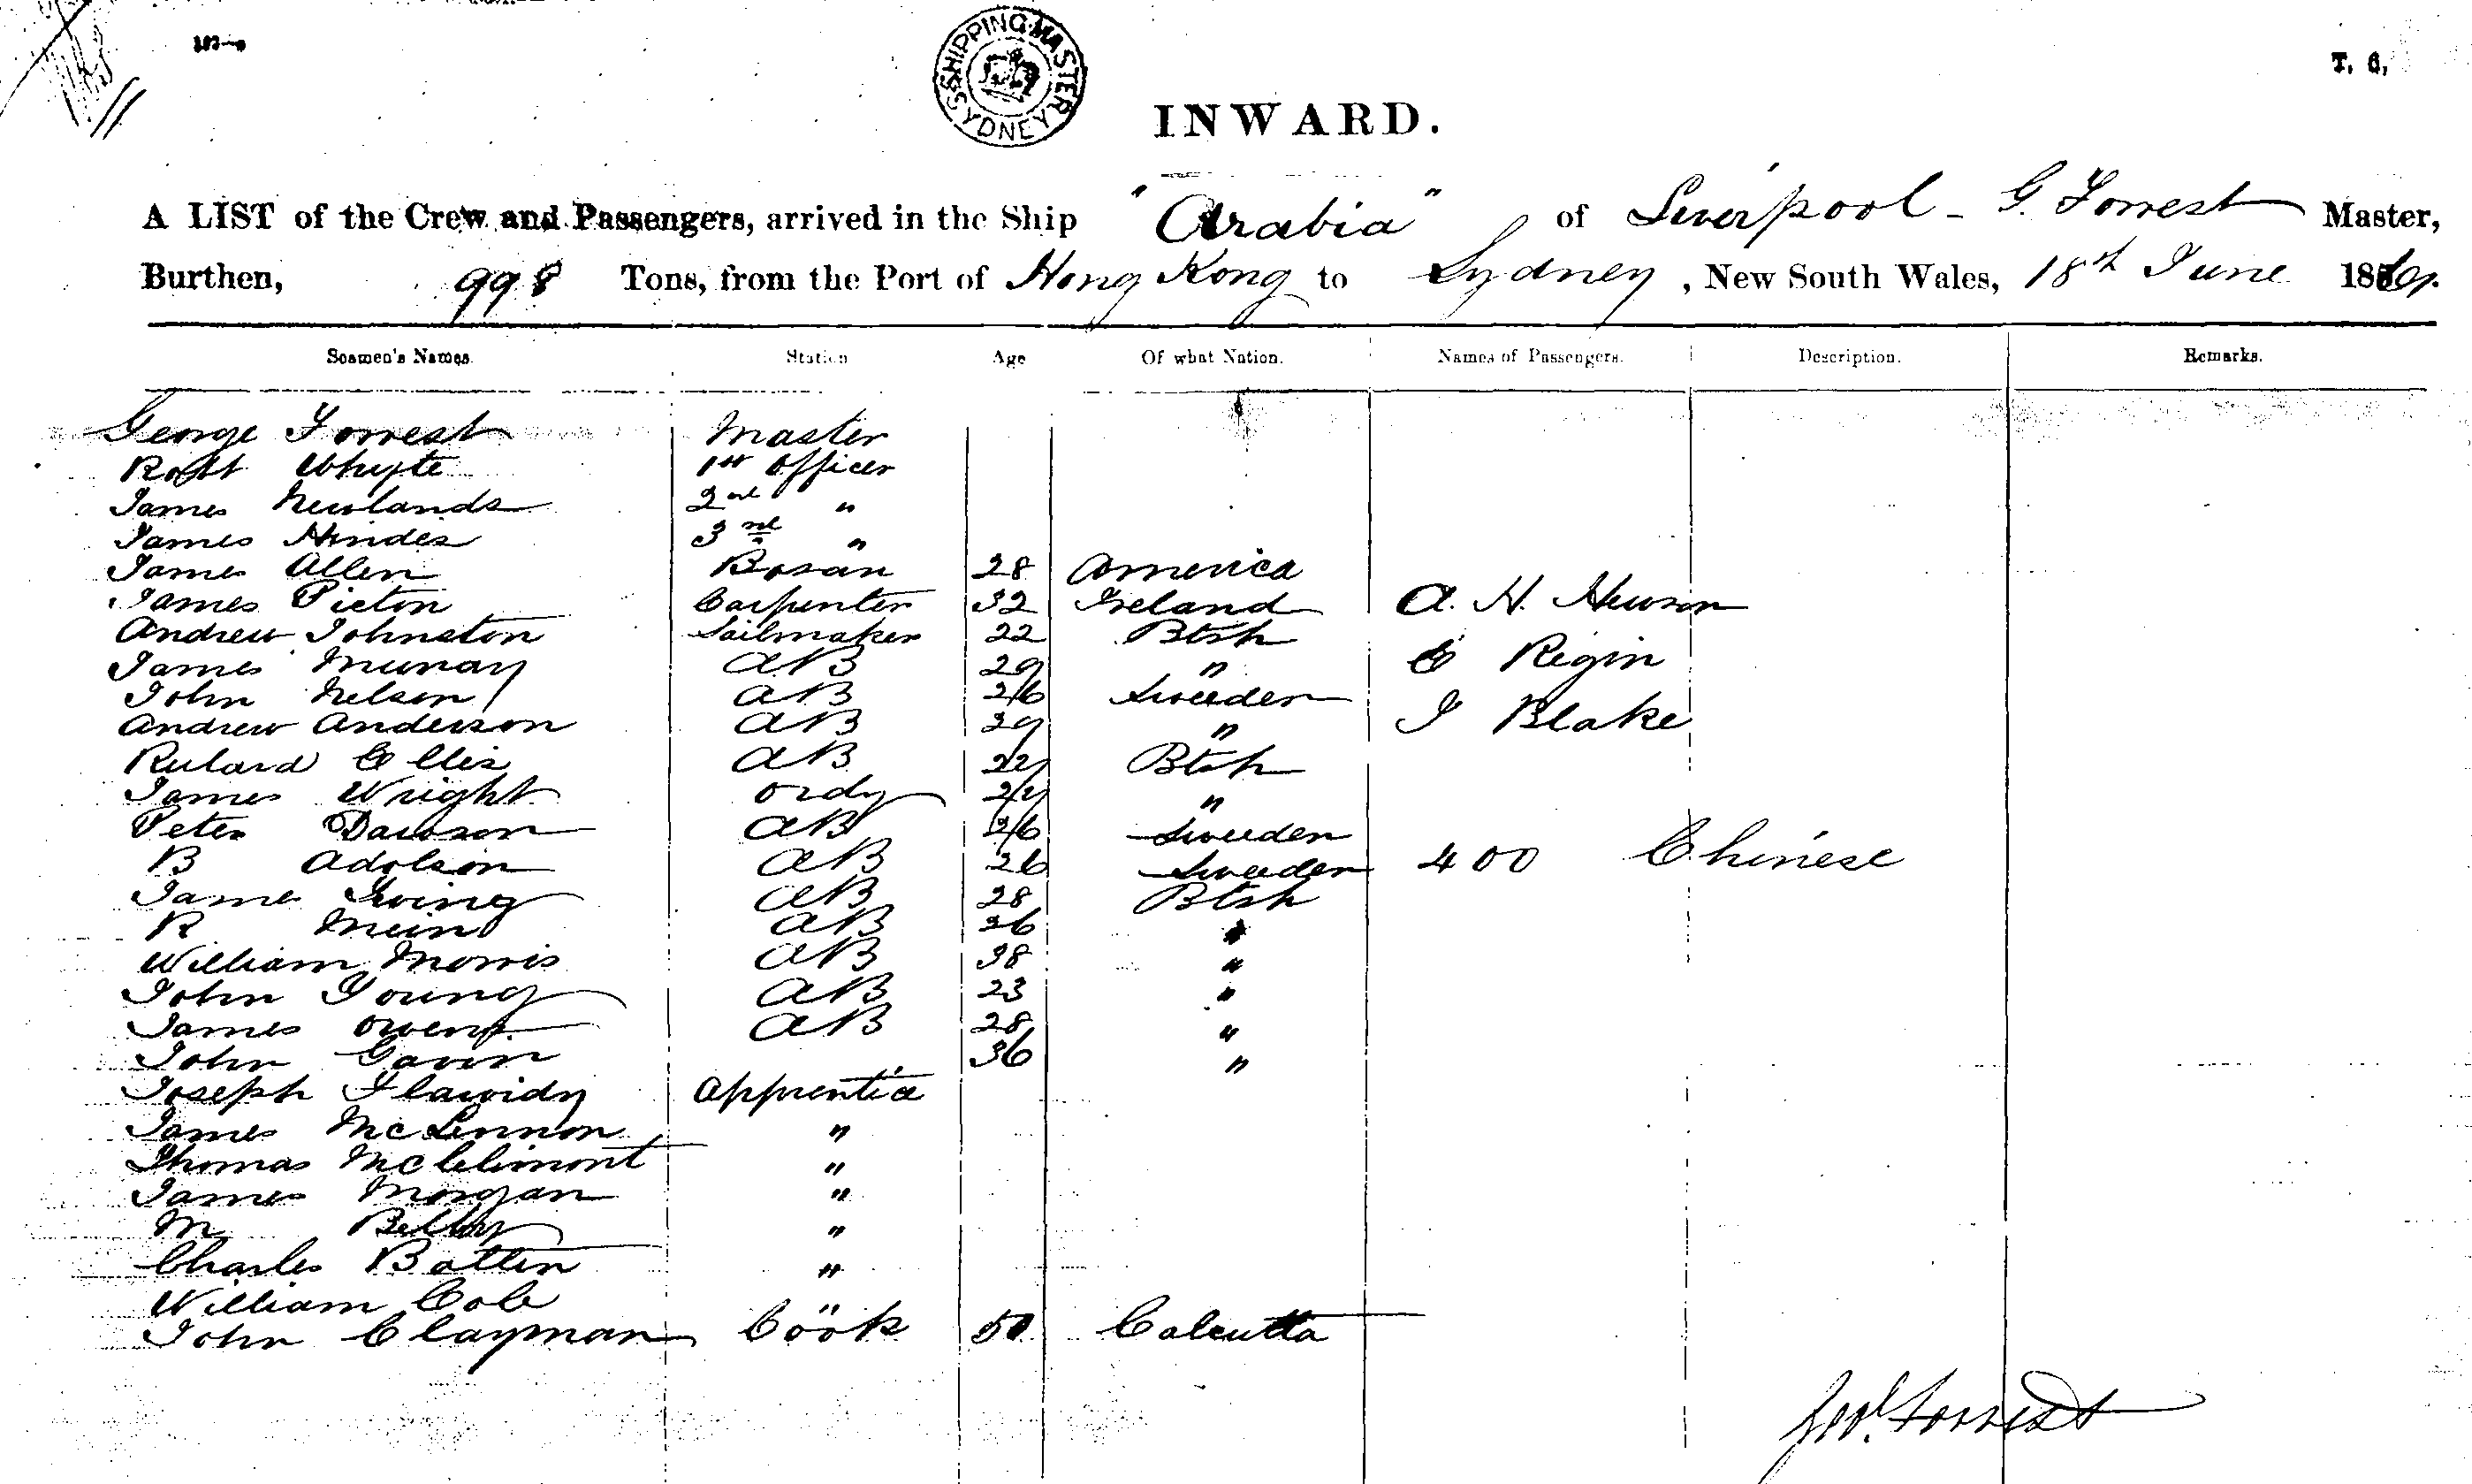 SHIPPING MASTER SYDNEY
T. 6,
INWARD.
A LIST of the Crew and Passengers, arrived in the Ship "Arabia" of Liverpool - G. Forrest Master,
Burthen, 998 Tons, from the Port of Hong Kong to Sydney, New South Wales, 18th June 1861.
Seamen's Names. Station Age Of what Nation. Names of Passengers. Description. Remarks.
George Forrest Master
Robt Whyte 1st Officer
James Newlands 2nd "
James Hindes 3rd "
James Allen Bosan 28 America
James Picton Carpenter 32 Ireland A. H. Hewson
Andrew Johnston Sailmaker 22 Btsh
James Murray AB 29 " E Rigin
John Nelson AB 26 Sweeden
Andrew Anderson AB 29 " J Blake
Richard Ellis AB 22 Btsh
James Wright ordy "
Peter Dawson AB 26 Sweeden
B Adolson AB 26 Sweeden 400 Chinese
James Ewing AB 28 Btsh
R Mein AB 26 "
William Morris AB 38 "
John Young AB 23 "
James Owens AB 28 "
John Gavin 36 "
Joseph Apprentice
James McLennon "
Thomas McClimont "
James Morgan "
M "
Charles Batten "
William Cole "
John Clayman Cook 50 Calcutta
Geo. Forrest